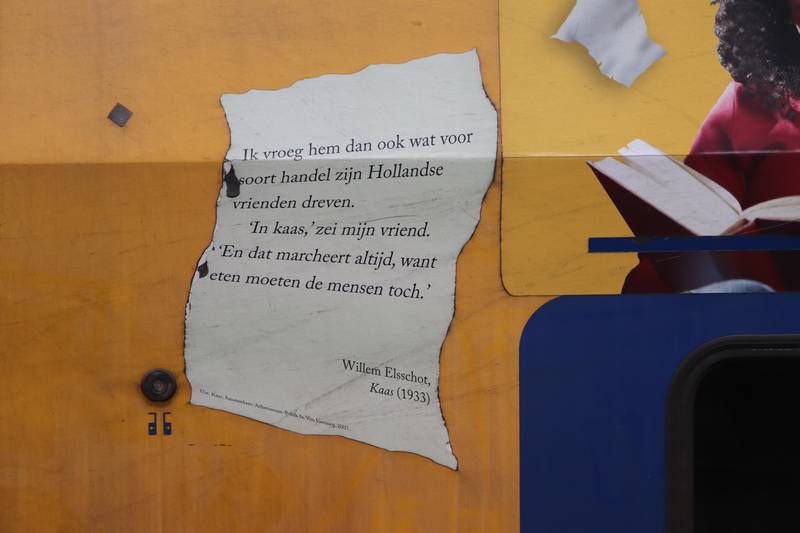 Ik vroeg hem dan ook wat voor
soort handel zijn Hollandse
vrienden dreven.
‘In kaas,’ zei mijn vriend.
‘En dat marcheert altijd, want
eten moeten de mensen toch.’
Willem Elsschot,
Kaas (1933)
Uit: Kaas, Amsterdam: Athenaeum-Polak & Van Gennep, 2003.